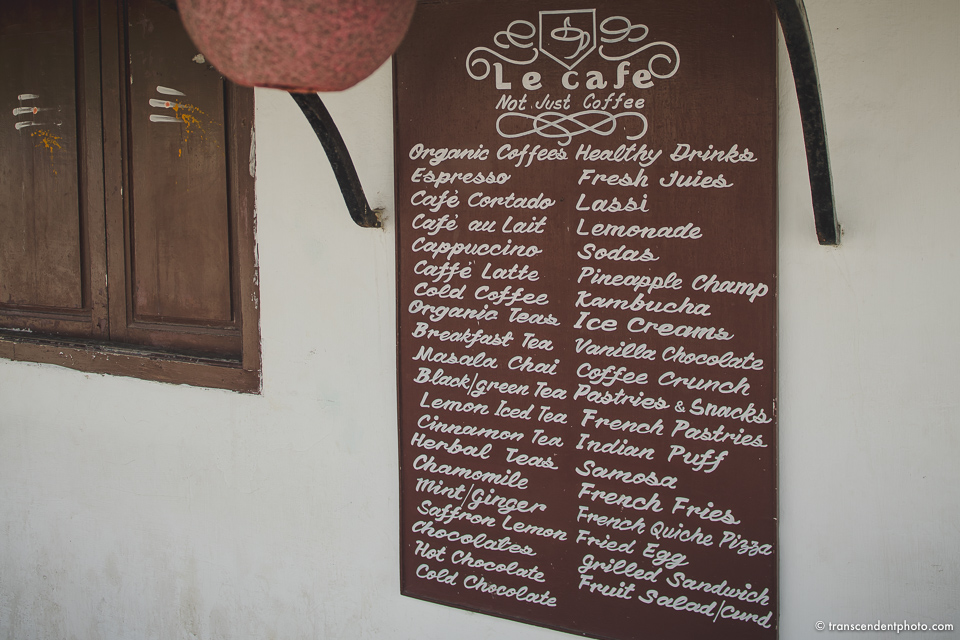 Le cafe
Not Just Coffee
Organic Coffees
Espresso
Cafè Cortado
Cafè au Lait
Cappuccino
Caffè Latte
Cold Coffee
Organic Teas
Breakfast Tea
Masala Chai
Black/green Tea
Lemon Iced Tea
Cinnamon Tea
Herbal Teas
Chamomile
Mint/Ginger
Saffron Lemon
chocolates
Hot Chocolate
Cold Chocolate
Healthy Drinks
Fresh Juies
Lassi
Lemonade
Sodas
Pineapple Champ
Kambucha
Ice Creams
Vanilla Chocolate
Coffee Crunch
Pastries & Snacks
French Pastries
Indian Puff
Samosa
French Fries
French Quiche Pizza
Fried Egg
grilled Sandwich
Fruit Salad/curd
© transcendentphoto.com